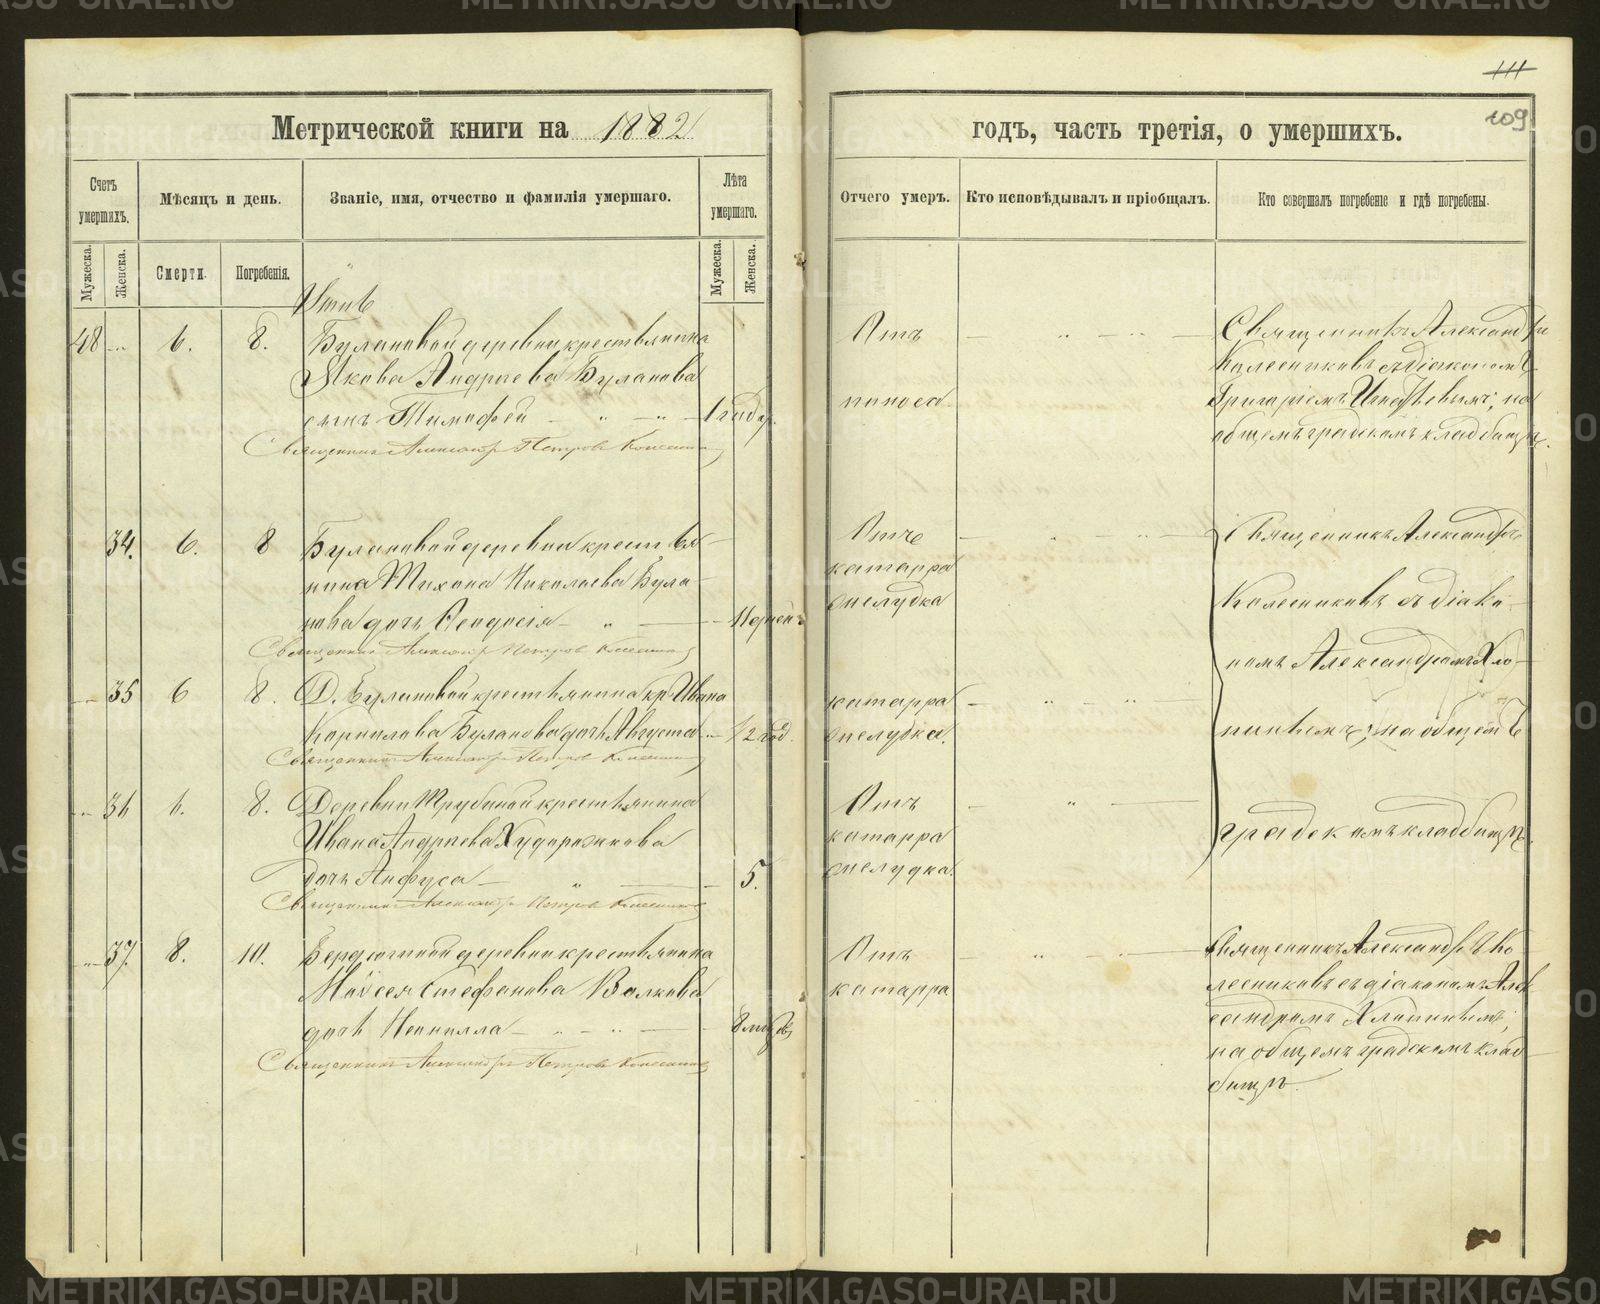 111
109
Метрической книги на 1882
годъ, часть третія, о умершихъ.
Счетъ умершихъ.
Мѣсяцъ и день.
Званіе, имя, отчество и фамилія умершаго.
Лѣта умершаго.
Отчего умеръ.
Кто исповѣдывалъ и пріобщалъ.
Кто совершалъ погребеніе и гдѣ погребены.
Мужеска.
Женска.
Смерти.
Погребенія.
Мужеска.
Женска.
48 6. 8.
Булановой деревни крестьянина
Якова Андреева Буланова
сынъ Тимофей
1 году.
Священникъ Александръ Петровъ
Отъ
поноса
Священникъ Александръ
Колесниковъ съ діакономъ
Григоріемъ; на
общемъ градскомъ кладбищѣ.
34. 6. 8
Булановой деревни крестья
нина Тихона Николаева Була
нова дочь Феодосія
Священникъ Александръ Петровъ
Отъ
катарра
желудка
35 6 8.
Д. Булановой крестьянина Ивана
Корнилова Буланова дочь Августа
2 год
Священникъ Александръ Петровъ
катарра
желудка.
36 6. 8.
Деревни Трубиной крестьянина
Ивана Андреева Худорожкова
дочь Анфуса
5.
Священникъ Александръ Петровъ
Отъ
катарра
желудка.
Священникъ Александръ
Колесниковъ съ діако
номъ Александромъ Хло
на общемъ
градскомъ кладбищѣ.
37. 8. 10.
деревни крестьянина
Моѵсея Стефанова Волкова
дочь Неонилла
8
Священникъ Александръ Петровъ
Отъ
катарра
Священникъ Александръ Ко
лесниковъ съ діакономъ Алек
сандромъ
на общемъ градскомъ клад
бищѣ.
METRIKI.GASO-URAL.RU